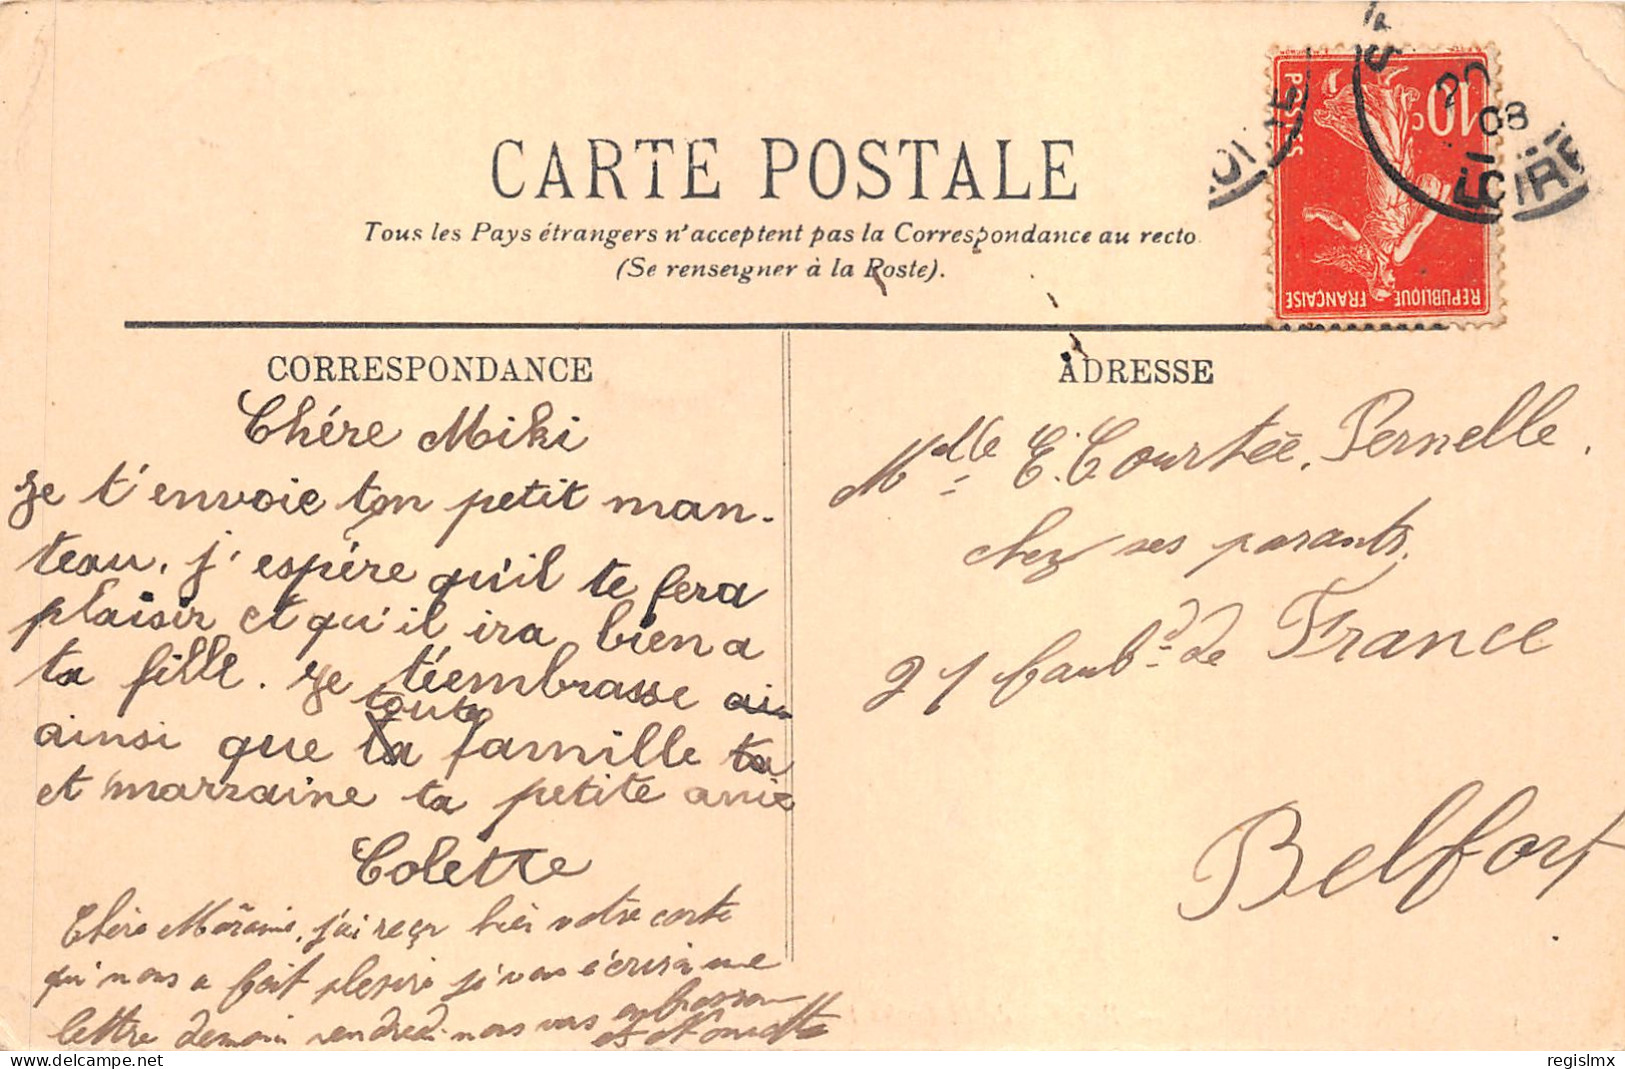 CARTE POSTALE
Tous les Pays étrangers n'acceptent pas la Correspondance au recto
(Se renseigner à la Poste).
POSTES
10c
REPUBLIQUE FRANÇAISE
08
CORRESPONDANCE
Chére Miki
Je t'envoie ton petit man-
teau, j'espére qu'il te fera
plaisir et qu'il ira bien a
ta fille. Je t'embrasse ai-
toute
ainsi que ta famille ta
et marraine ta petite amie
Colette
Chère Marraine, j'ai reçu hier votre carte
qui nous a fait plesire je vous écrirai une
lettre demain vendredi nous vous embrassons
et
ADRESSE
Mlle E. Courtée. Pernelle.
chez ses parants,
21 Faubd de France
Belfort
regislmx
delcampe.net